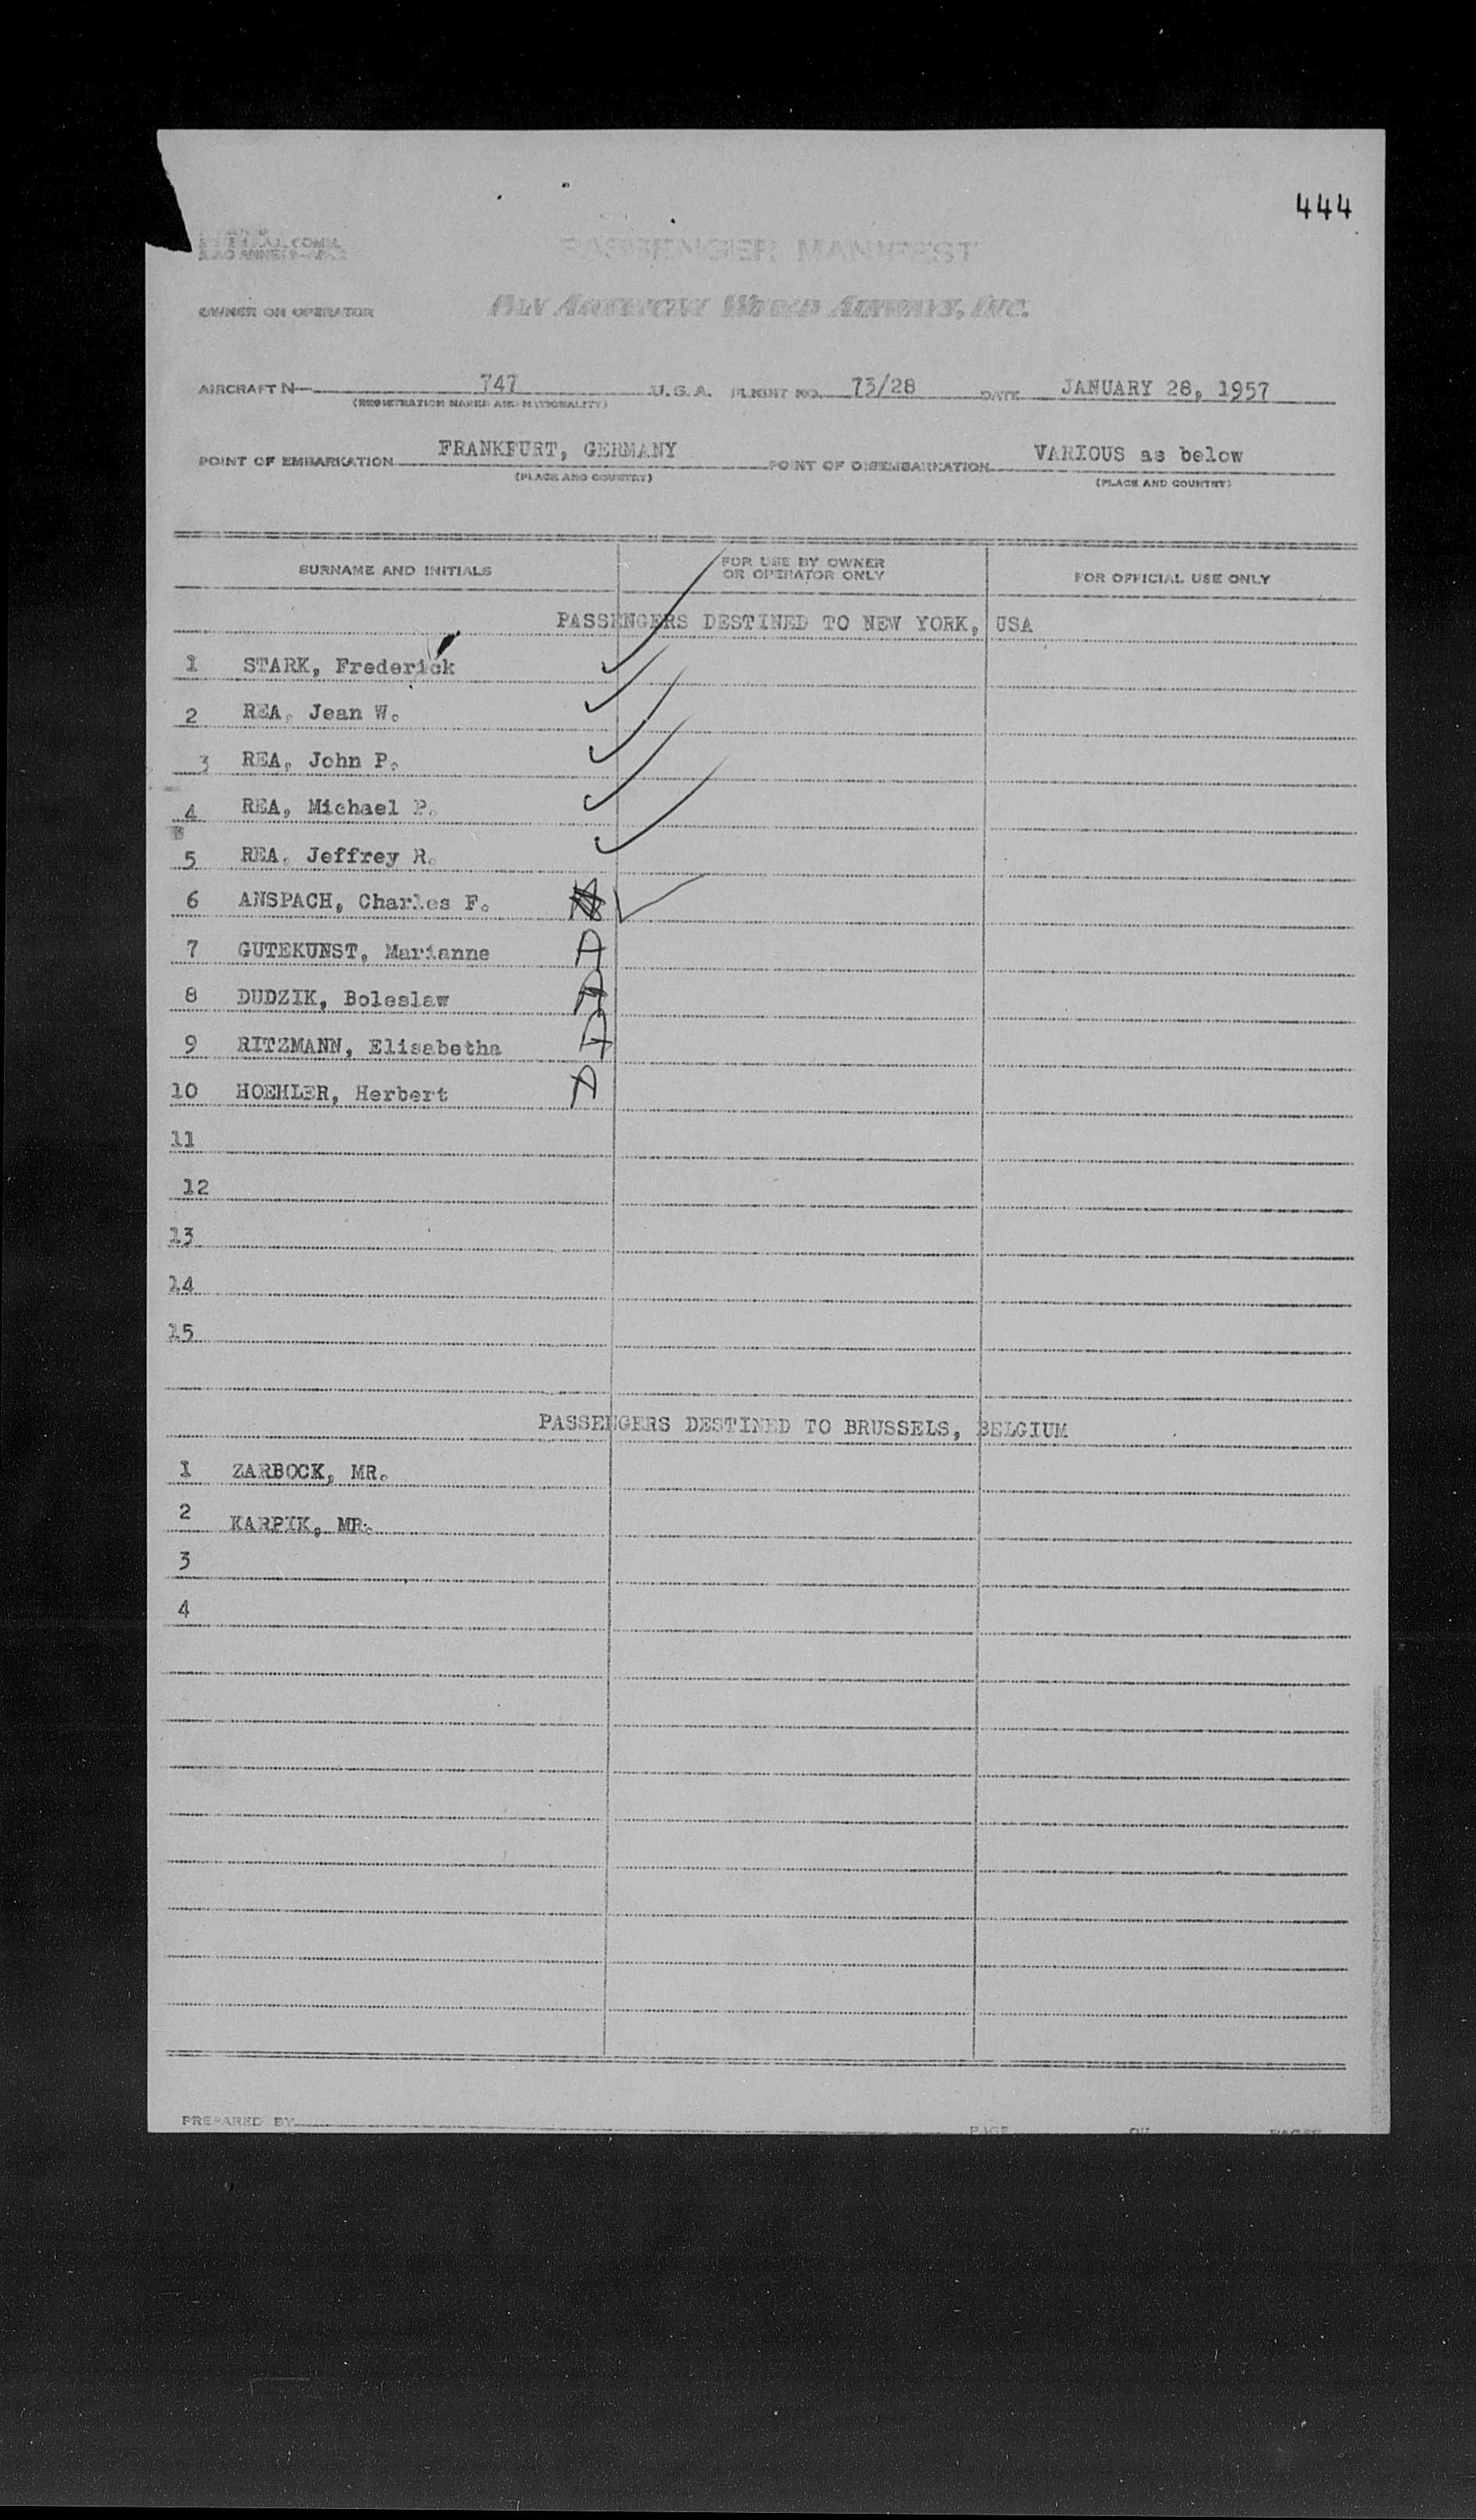 444
PASSENGER MANIFEST
OWNER OR OPERATOR PAN AMERICAN WORLD AIRWAYS, INC.
AIRCRAFT N— 747 U.S.A. FLIGHT NO. 73/28 DATE JANUARY 28, 1957
(REGISTRATION MARKS AND NATIONALITY)
POINT OF EMBARKATION FRANKFURT, GERMANY POINT OF DISEMBARKATION VARIOUS as below
(PLACE AND COUNTRY) (PLACE AND COUNTRY)
SURNAME AND INITIALS FOR USE BY OWNER OR OPERATOR ONLY FOR OFFICIAL USE ONLY
PASSENGERS DESTINED TO NEW YORK, USA
1 STARK, Frederick
2 REA, Jean W.
3 REA, John P.
4 REA, Michael P.
5 REA, Jeffrey R.
6 ANSPACH, Charles F.
7 GUTEKUNST, Marianne A
8 DUDZIK, Boleslaw A
9 RITZMANN, Elisabetha A
10 HOEHLER, Herbert A
11
12
13
14
15
PASSENGERS DESTINED TO BRUSSELS, BELGIUM
1 ZARBOCK, MR.
2 KARPIK, MR.
3
4
PREPARED BY PAGE PAGES